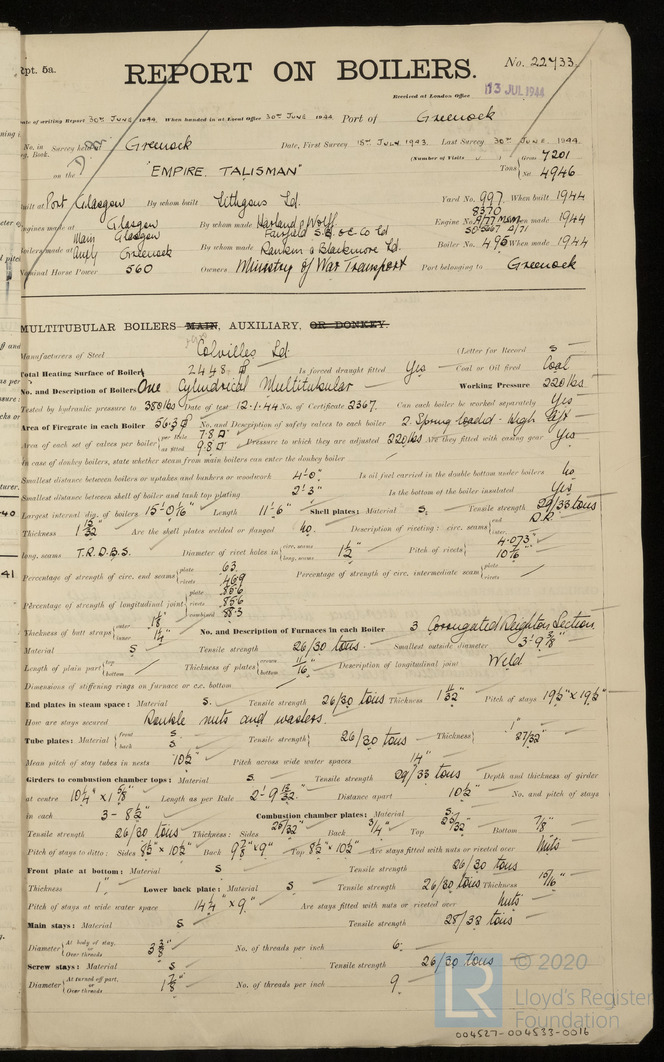 Rpt. 5a.
REPORT ON BOILERS.
No. 22733.
Received at London Office
13 JUL 1944
Date of writing Report 30th June 1944 When handed in at Local Office 30th June 1944 Port of Greenock
No. in Survey held at Greenock Date, First Survey 15th July 1943 Last Survey 30th June 1944
Reg. Book. (Number of Visits )
on the "EMPIRE TALISMAN" Tons Gross 7201 Net 4946
Built at Port Glasgow By whom built Lithgows Ld. Yard No. 997 When built 1944
Engines made at Glasgow By whom made Harland & Wolff Engine No. When made 1944
Main Glasgow Fairfield S.B. & E. Co Ld
Boilers made at Auxy Greenock By whom made Rankin & Blackmore Ld. Boiler No. 495 When made 1944
Nominal Horse Power 560 Owners Ministry of War Transport Port belonging to Greenock
MULTITUBULAR BOILERS MAIN, AUXILIARY, OR DONKEY.
Manufacturers of Steel Colvilles Ld (Letter for Record S
Total Heating Surface of Boilers 2448 Is forced draught fitted Yes Coal or Oil fired Coal
No. and Description of Boilers One Cylindrical Multitubular Working Pressure 220 lbs
Tested by hydraulic pressure to 380 lbs Date of test 12.1.44 No. of Certificate 2367. Can each boiler be worked separately Yes
Area of Firegrate in each Boiler 56.3 No. and Description of safety valves to each boiler 2 Spring loaded - High
Area of each set of valves per boiler per Rule 7.8 as fitted 9.8 Pressure to which they are adjusted 220 lbs Are they fitted with easing gear Yes
In case of donkey boilers, state whether steam from main boilers can enter the donkey boiler
Smallest distance between boilers or uptakes and bunkers or woodwork 4'-0" Is oil fuel carried in the double bottom under boilers No
Smallest distance between shell of boiler and tank top plating 2'-3" Is the bottom of the boiler insulated Yes
Largest internal dia. of boilers 15'-0 1/16" Length 11'-6" Shell plates: Material S. Tensile strength 29/33 tons
Thickness 1 15/32" Are the shell plates welded or flanged No. Description of riveting: circ. seams end D.R. inter.
long. seams T.R.D.B.S. Diameter of rivet holes in circ. seams long. seams 1 1/2" Pitch of rivets 4.073" 10 5/16"
Percentage of strength of circ. end seams plate 63. rivets 46.9 Percentage of strength of circ. intermediate seam plate rivets
Percentage of strength of longitudinal joint plate 85.6 rivets 85.6 combined 88.3
Thickness of butt straps outer 1 1/8" inner 1 1/4" No. and Description of Furnaces in each Boiler 3 Corrugated Deighton Section
Material S Tensile strength 26/30 tons. Smallest outside diameter 3'-9 3/8"
Length of plain part top bottom Thickness of plates crown bottom 11/16" Description of longitudinal joint Weld
Dimensions of stiffening rings on furnace or c.c. bottom
End plates in steam space: Material S. Tensile strength 26/30 tons Thickness 1 11/32" Pitch of stays 19 1/2" x 19 1/2"
How are stays secured Double nuts and washers.
Tube plates: Material front S. back S. Tensile strength 26/30 tons Thickness 1" 27/32"
Mean pitch of stay tubes in nests 10 1/2" Pitch across wide water spaces 14"
Girders to combustion chamber tops: Material S. Tensile strength 29/33 tons Depth and thickness of girder
at centre 10 1/4" x 1 5/8" Length as per Rule 2'-9 13/32" Distance apart 10 1/2" No. and pitch of stays
in each 3 - 8 1/2" Combustion chamber plates: Material S.
Tensile strength 26/30 tons Thickness: Sides 25/32" Back 3/4" Top 25/32" Bottom 7/8"
Pitch of stays to ditto: Sides 8 1/2" x 10 1/2" Back 9 7/8" x 9" Top 8 1/2" x 10 1/2" Are stays fitted with nuts or riveted over Nuts
Front plate at bottom: Material S Tensile strength 26/30 tons
Thickness 1" Lower back plate: Material S Tensile strength 26/30 tons Thickness 15/16"
Pitch of stays at wide water space 14 1/4" x 9" Are stays fitted with nuts or riveted over Nuts
Main stays: Material S Tensile strength 28/33 tons
Diameter At body of stay, or Over threads 3 3/8" No. of threads per inch 6.
Screw stays: Material S Tensile strength 26/30 tons
Diameter At turned off part, or Over threads 1 7/8" No. of threads per inch 9.
© 2020
LR
Lloyd's Register
Foundation
004527-004533-0016